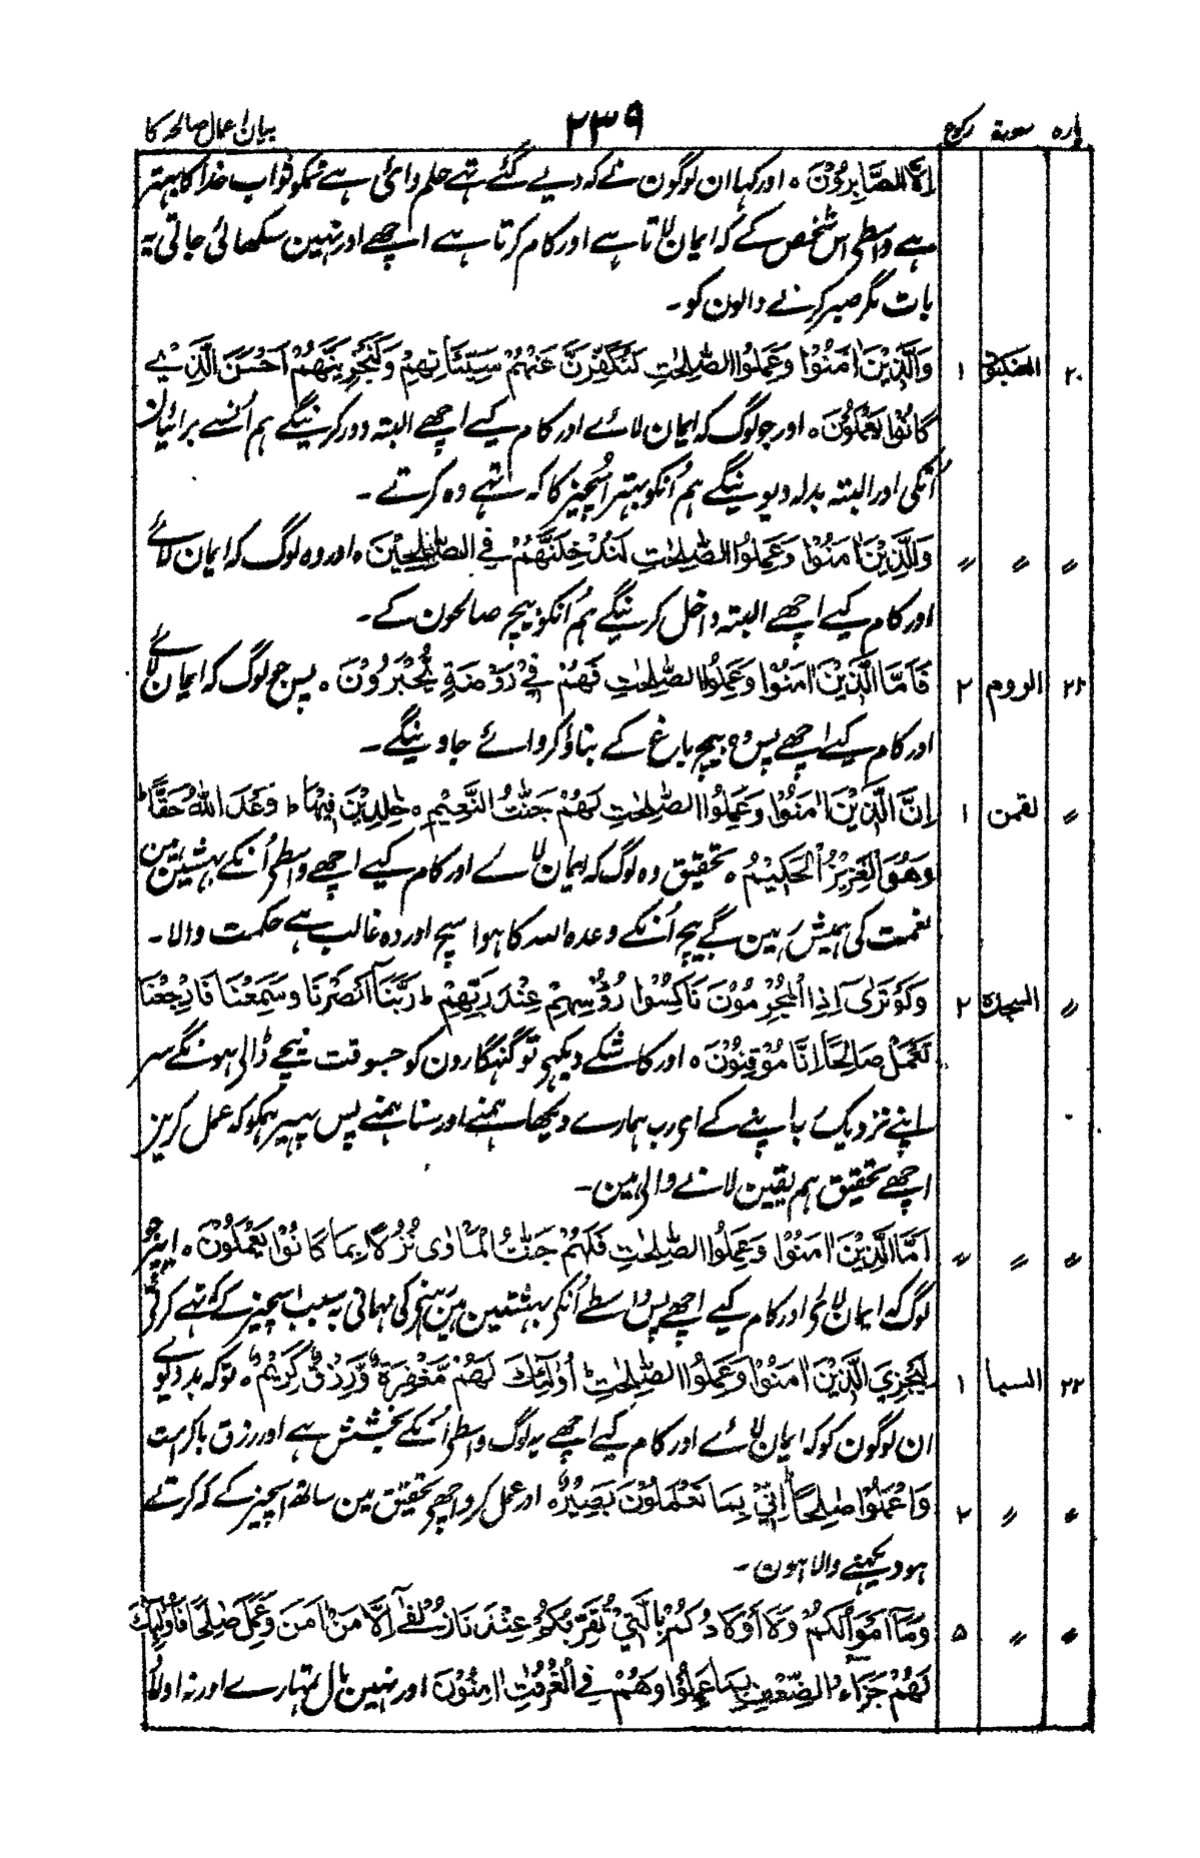 پارہ سورۃ رکوع ۲۳۹ بیان اعمال صالحہ کا
اِلَّا الصَّابِرُوْنَ ہ اور کہا ان لوگون نے کہ دیے گئے تہے علم وائی ہے تمکو ثواب خدا کا بہتر
ہے واسطی اس شخص کے کہ ایمان لاتا ہے اور کام کرتا ہے اچھے اور نہین سکھائی جاتی یہ
بات مگر صبر کرنے والون کو۔
۲۰ العنکبوت ۱ وَالَّذِیْنَ اٰمَنُوْا وَعَمِلُوا الصّٰلِحٰتِ لَنُکَفِّرَنَّ عَنْہُمْ سَیِّئَاٰتِہِمْ وَلَنَجْزِیَنَّہُمْ اَحْسَنَ الَّذِیْ
کَانُوْا یَعْمَلُوْنَ ہ اور جو لوگ کہ ایمان لائے اور کام کیے اچھے البتہ دور کرینگے ہم اُنسے برائیان
اُنکی اور البتہ بدلہ دیوینگے ہم اُنکو بہتر اُسچیز کا کہ تہے وہ کرتے۔
〃 〃 〃 وَالَّذِیْنَ اٰمَنُوْا وَعَمِلُوا الصّٰلِحٰتِ لَنُدْخِلَنَّہُمْ فِی الصّٰلِحِیْنَ ہ اور وہ لوگ کہ ایمان لائے
اور کام کیے اچھے البتہ داخل کرینگے ہم اُنکو بیچ صالحون کے۔
۲۱ الروم ۲ فَاَمَّا الَّذِیْنَ اٰمَنُوْا وَعَمِلُوا الصّٰلِحٰتِ فَہُمْ فِیْ رَوْضَۃٍ یُّحْبَرُوْنَ ہ پس جو لوگ کہ ایمان لائے
اور کام کیے اچھے پس وہ بیچ باغ کے بناؤ کروائے جاوینگے۔
〃 لقمن ۱ اِنَّ الَّذِیْنَ اٰمَنُوْا وَعَمِلُوا الصّٰلِحٰتِ لَہُمْ جَنّٰتُ النَّعِیْمِ ہ خٰلِدِیْنَ فِیْہَا ط وَعْدَ اللّٰہِ حَقًّا ط
وَہُوَ الْعَزِیْزُ الْحَکِیْمُ ہ تحقیق وہ لوگ کہ ایمان لائے اور کام کیے اچھے واسطی اُنکے بہشتین ہین
نعمت کی ہمیش رہین گے بیچ اُنکے وعدہ اللہ کا ہوا سچ اور وہ غالب ہے حکمت والا۔
〃 السجدۃ ۲ وَلَوْ تَرٰی اِذِ الْمُجْرِمُوْنَ نَاکِسُوْا رُؤُسِہِمْ عِنْدَ رَبِّہِمْ ط رَبَّنَا اَبْصَرْنَا وَسَمِعْنَا فَارْجِعْنَا
نَعْمَلْ صَالِحًا اِنَّا مُوْقِنُوْنَ ہ اور کاشکے دیکہی تو گنہگارون کو جسوقت نیچے ڈالی ہونگے سر
اپنے نزدیک باپنے کے ای رب ہمارے دیکھا ہمنے اور سنا ہمنے پس پہیر ہمکو کہ عمل کرین
اچھے تحقیق ہم یقین لانے والی ہین۔
〃 〃 〃 اَمَّا الَّذِیْنَ اٰمَنُوْا وَعَمِلُوا الصّٰلِحٰتِ فَلَہُمْ جَنّٰتُ الْمَاْوٰی نُزُلًا بِمَا کَانُوْا یَعْمَلُوْنَ ہ جو
لوگ کہ ایمان لائی اور کام کیے اچھے پس واسطے اُنکی بہشتین ہین رہنے کی مہمانی بہ سبب اسچیز کے کہ تہے کرتی
۲۲ السبا ۱ لِیَجْزِیَ الَّذِیْنَ اٰمَنُوْا وَعَمِلُوا الصّٰلِحٰتِ ط اُولٰٓئِکَ لَہُمْ مَّغْفِرَۃٌ وَّرِزْقٌ کَرِیْمٌ ہ توکہ بدلہ دیوے
ان لوگون کو کہ ایمان لائے اور کام کیے اچھے یہ لوگ واسطی اُنکے بخشش ہے اور رزق باکرامت
〃 〃 ۲ وَاعْمَلُوْا صٰلِحًا اِنِّیْ بِمَا تَعْمَلُوْنَ بَصِیْرٌ ہ اور عمل کرو اچھے تحقیق مین ساتھ اسچیز کے کہ کرتے
ہو دیکہنے والا ہون۔
〃 〃 ۵ وَمَآ اَمْوَالُکُمْ وَلَا اَوْلَادُکُمْ بِالَّتِیْ تُقَرِّبُکُمْ عِنْدَنَا زُلْفٰی اِلَّا مَنْ اٰمَنَ وَعَمِلَ صٰلِحًا فَاُولٰٓئِکَ
لَہُمْ جَزَآءُ الضِّعْفِ بِمَا عَمِلُوْا وَہُمْ فِی الْغُرُفٰتِ اٰمِنُوْنَ اور نہین مال تمہارے اور نہ اولاد